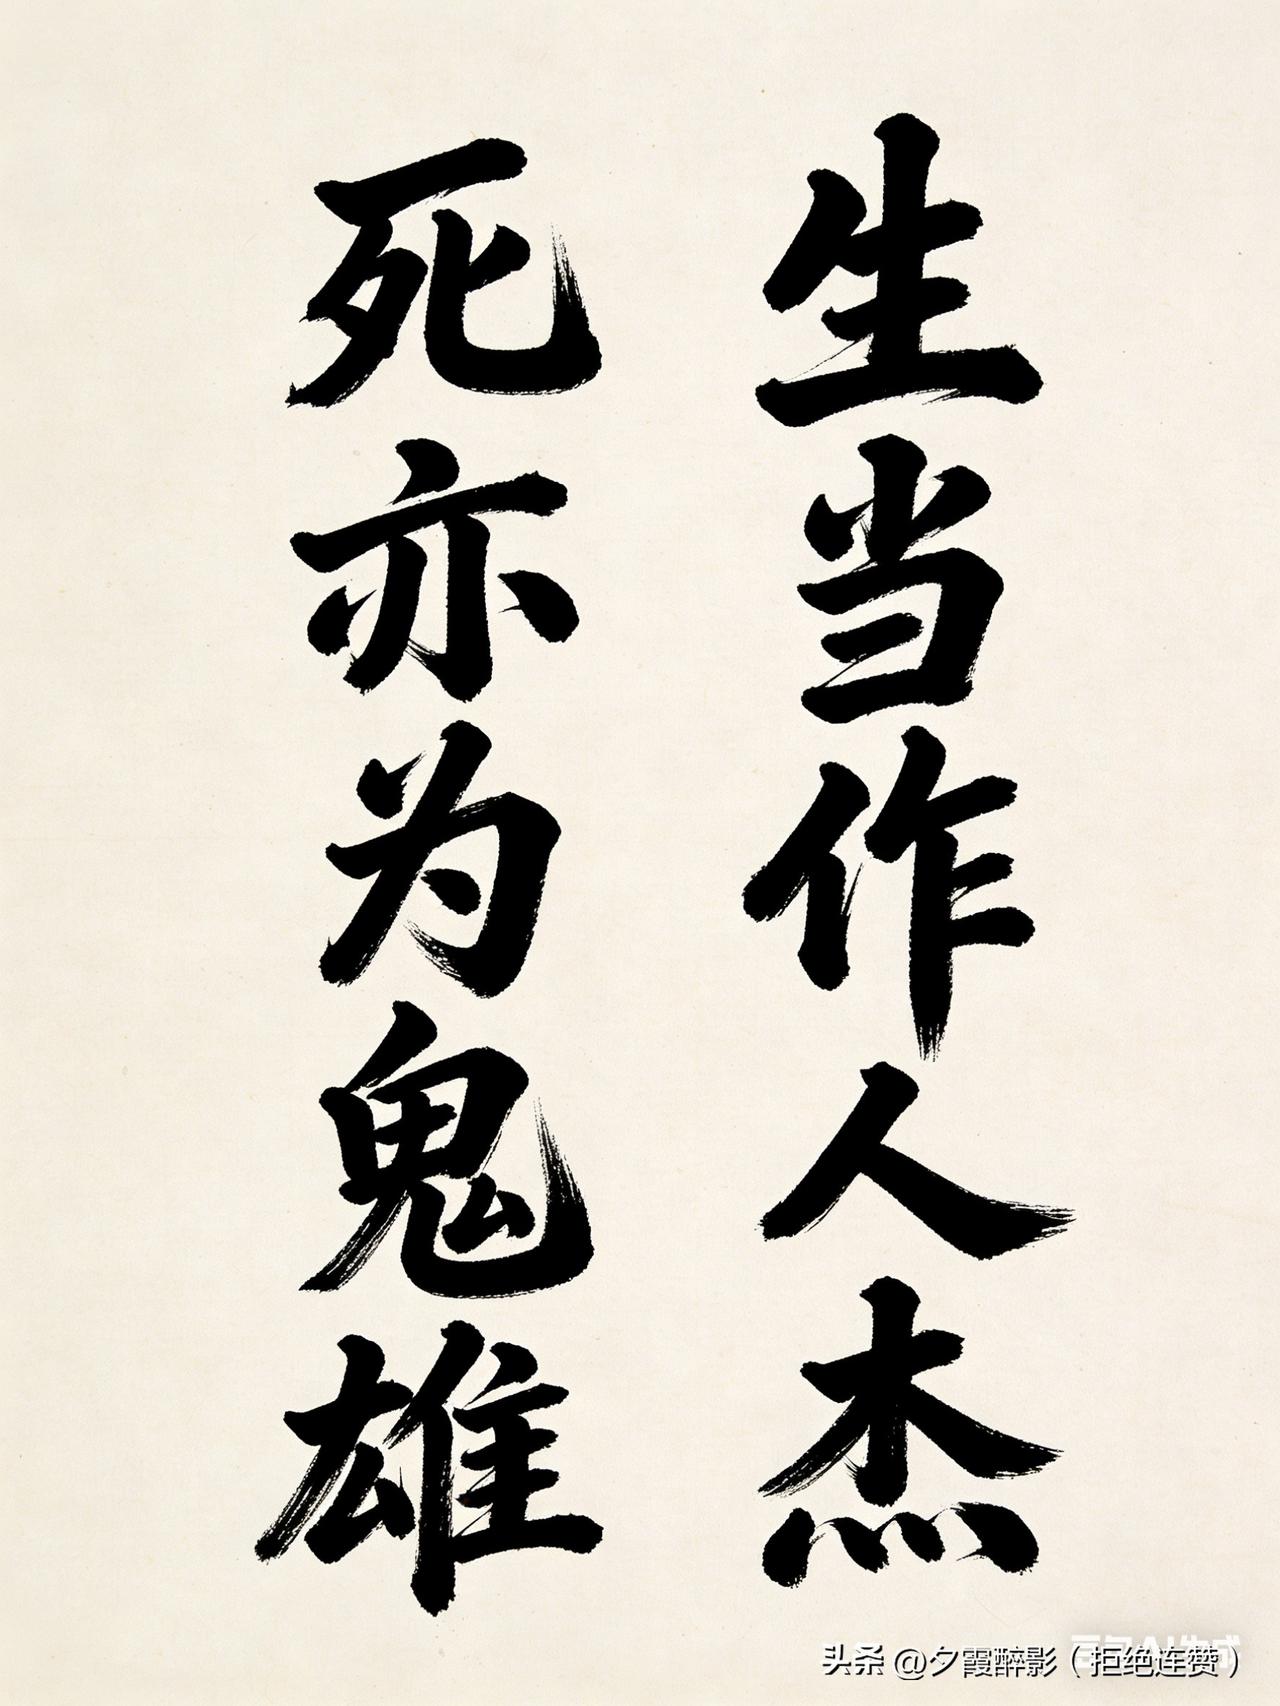 生当作人杰
死亦为鬼雄
头条 @夕霞醉影（拒绝连赞）